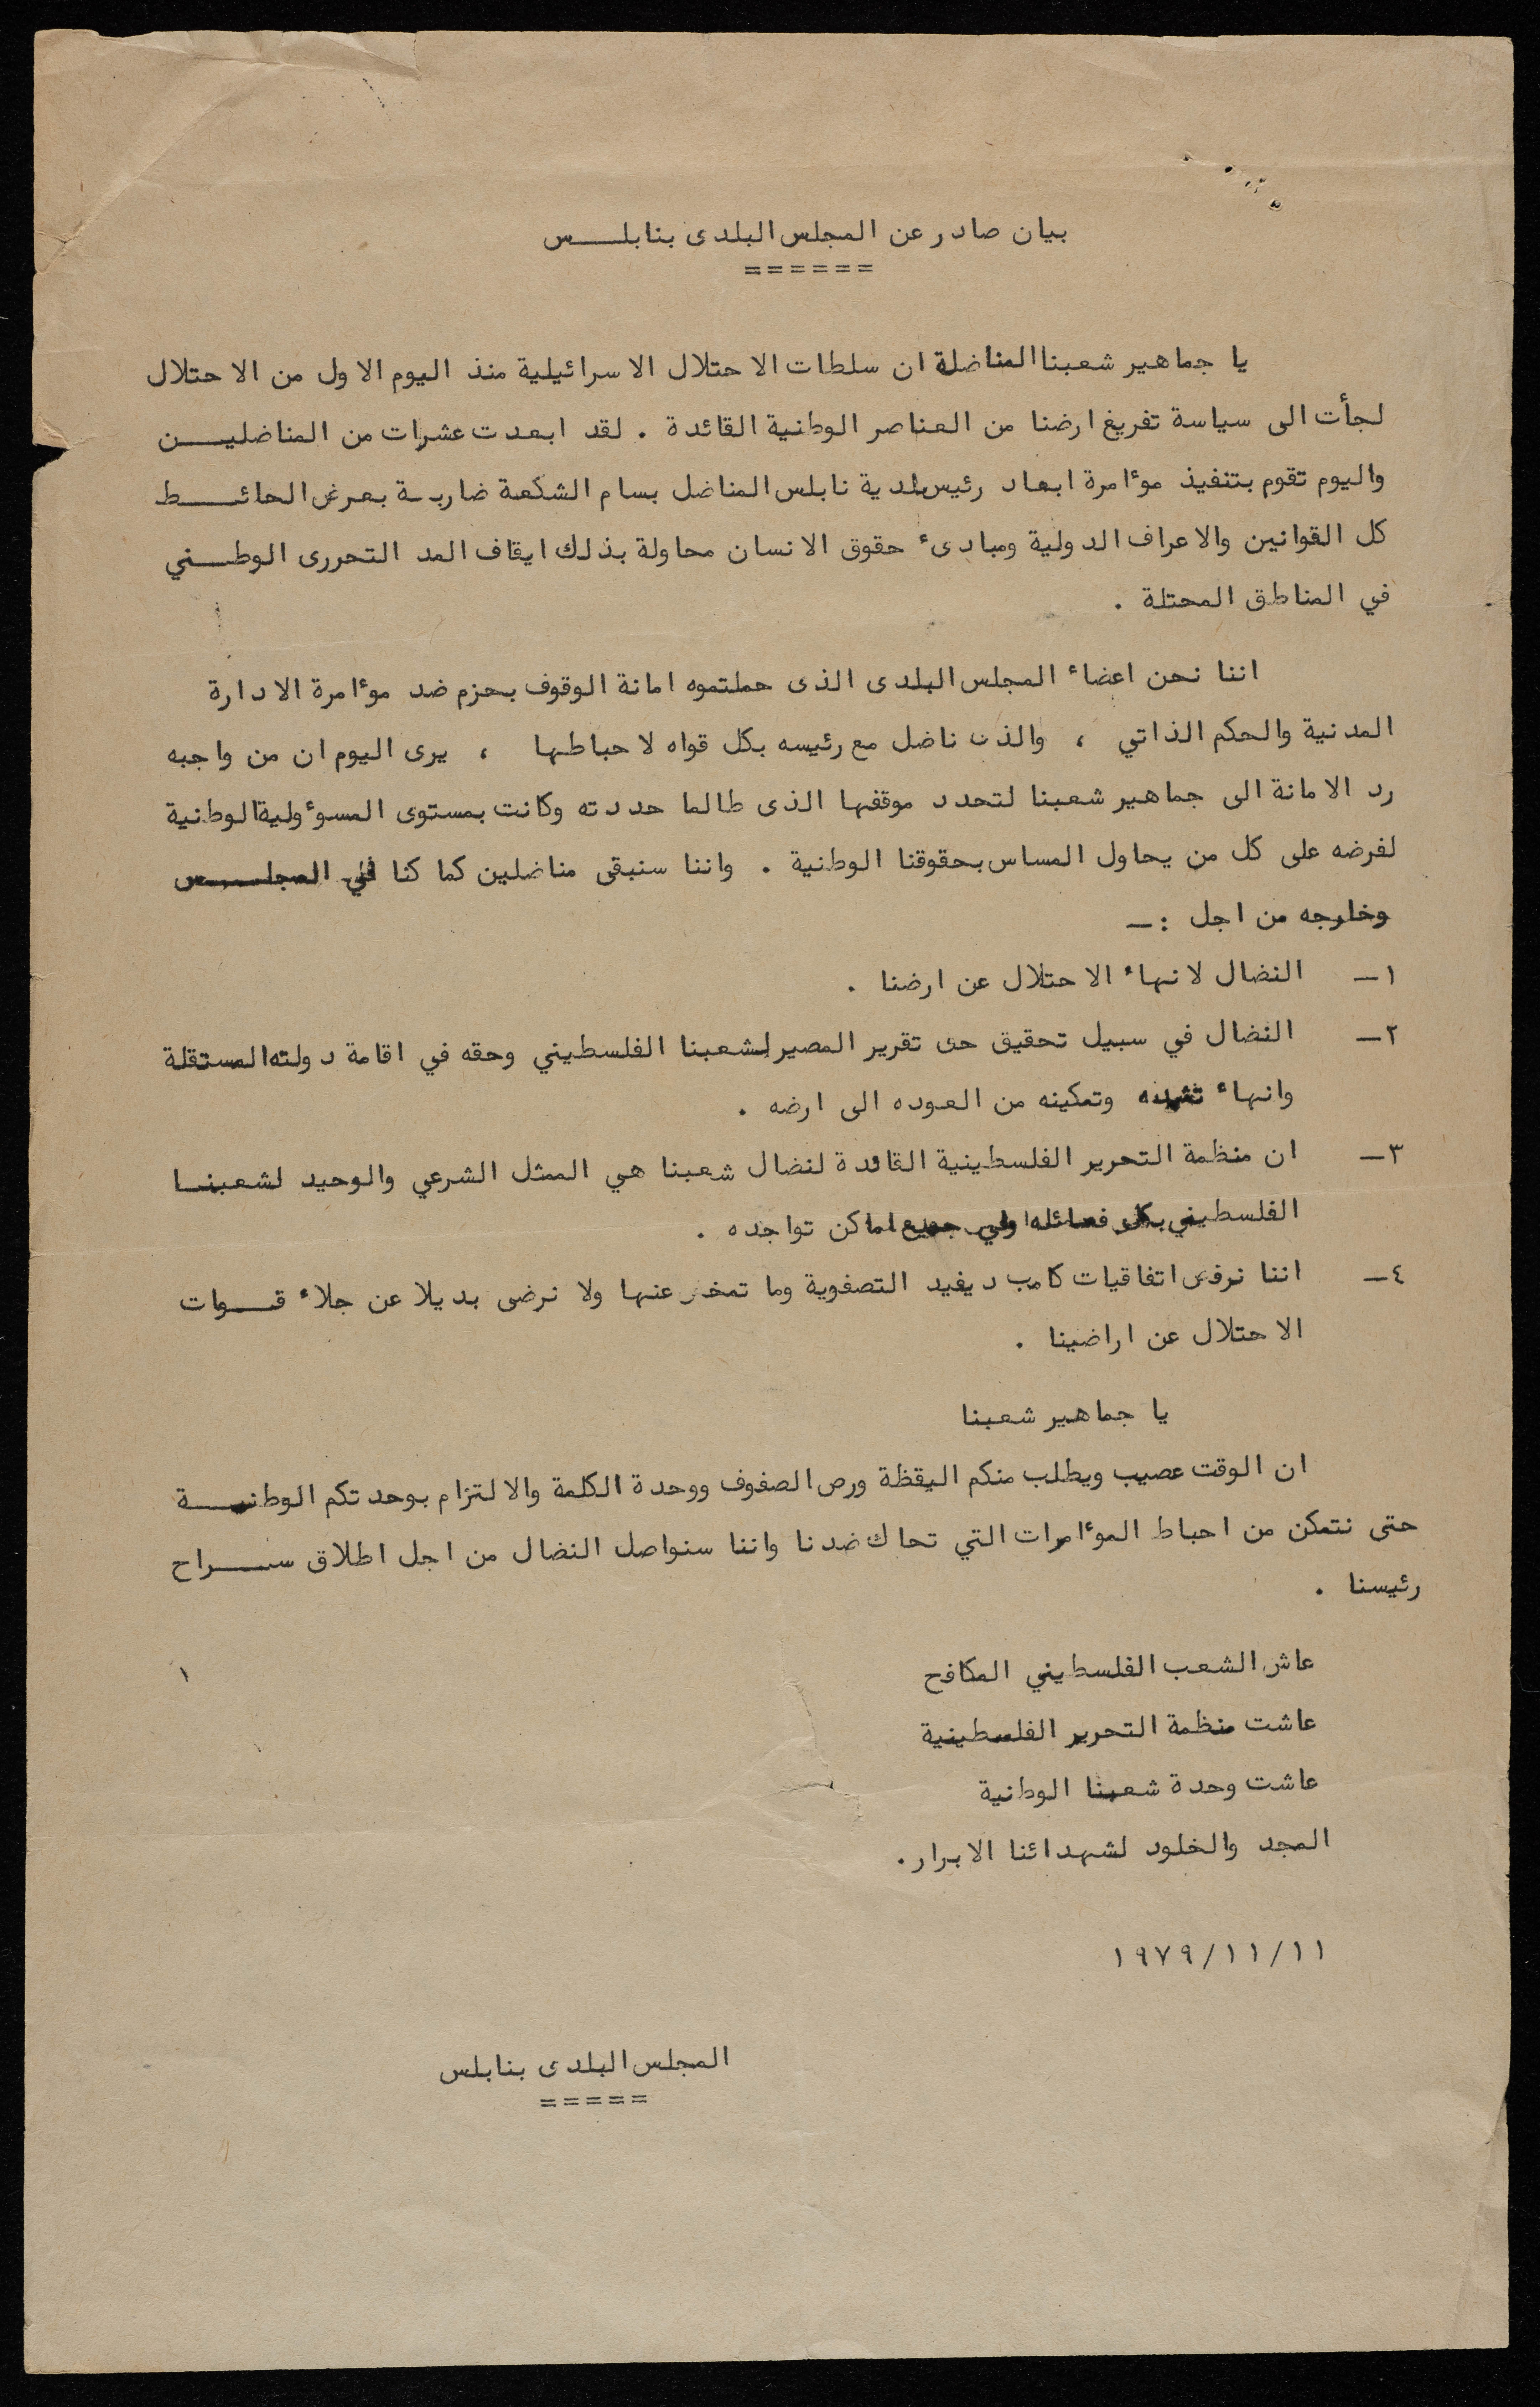 بيان صادر عن المجلس البلدى بنابلـــس
======
يا جماهير شعبنا المناضلة ان سلطات الاحتلال الاسرائيلية منذ اليوم الاول من الاحتلال
لجأت الى سياسة تفريغ ارضنا من العناصر الوطنية القائدة . لقد ابعدت عشرات من المناضليــن
واليوم تقوم بتنفيذ موٴامرة ابعاد رئيس بلدية نابلس المناضل بسام الشكعة ضاربة بعرض الحائــط
كل القوانين والاعراف الدولية ومبادىء حقوق الانسان محاولة بذلك ايقاف المد التحررى الوطــني
في المناطق المحتلة .
اننا نحن اعضاء المجلس البلدى الذى حملتموه امانة الوقوف بحزم ضد موٴامرة الادارة
المدنية والحكم الذاتي ، والذى ناضل مع رئيسه بكل قواه لاحباطها ، يرى اليوم ان من واجبه
رد الامانة الى جماهير شعبنا لتحدد موقفها الذى طالما حددته وكانت بمستوى المسوٴولية الوطنية
لفرضه على كل من يحاول المساس بحقوقنا الوطنية . واننا سنبقى مناضلين كما كنا في المجلــس
وخارجه من اجل :ـ
١ـ النضال لانهاء الاحتلال عن ارضنا .
٢ـ النضال في سبيل تحقيق حق تقرير المصير لشعبنا الفلسطيني وحقه في اقامة دولته المستقلة
وانهاء تشرده وتمكينه من العوده الى ارضه .
٣ـ ان منظمة التحرير الفلسطينية القائدة لنضال شعبنا هي الممثل الشرعي والوحيد لشعبنــا
الفلسطيني بكل فصائله وفي جميع اماكن تواجده .
٤ـ اننا نرفض اتفاقيات كامب ديفيد التصفوية وما تمخض عنها ولا نرضى بديلا عن جلاء قــوات
الاحتلال عن اراضينا .
يا جماهير شعبنا
ان الوقت عصيب ويطلب منكم اليقظة ورص الصفوف ووحدة الكلمة والالتزام بوحدتكم الوطنيــة
حتى نتمكن من احباط الموٴامرات التي تحاك ضدنا واننا سنواصل النضال من اجل اطلاق ســراح
رئيسنا .
عاش الشعب الفلسطيني المكافح
عاشت منظمة التحرير الفلسطينية
عاشت وحدة شعبنا الوطنية
المجد والخلود لشهدائنا الابرار.
١٩٧٩/١١/١١
المجلس البلدى بنابلس
=====